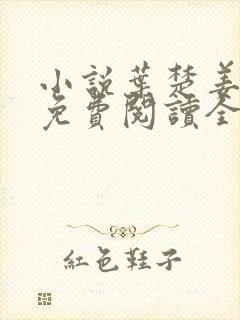 小說葉楚姜
免費閱讀全
紅色鞋子